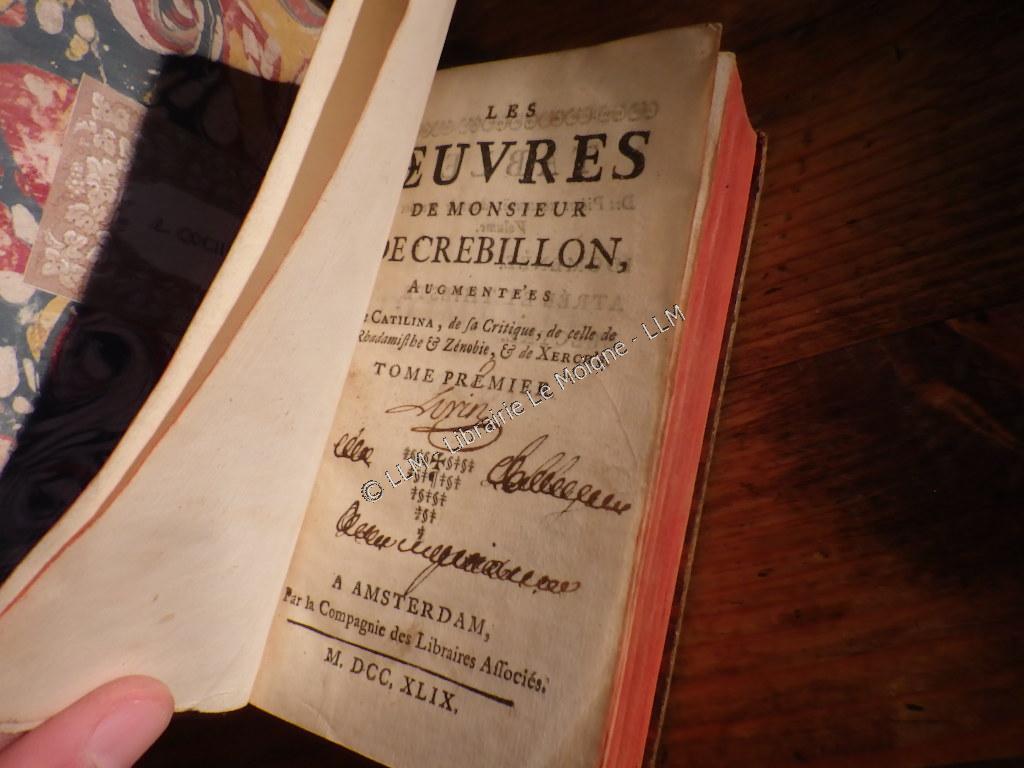 LES
ŒUVRES
DE MONSIEUR
DE CREBILLON,
AUGMENTE'ES
CATILINA, de sa Critique, de celle de
Rhadamisthe & Zénobie, & de XERCÈS
TOME PREMIER
A AMSTERDAM,
Par la Compagnie des Libraires Associés.
M. DCC, XLIX.
© LLM - Librairie Le Moigne - LLM